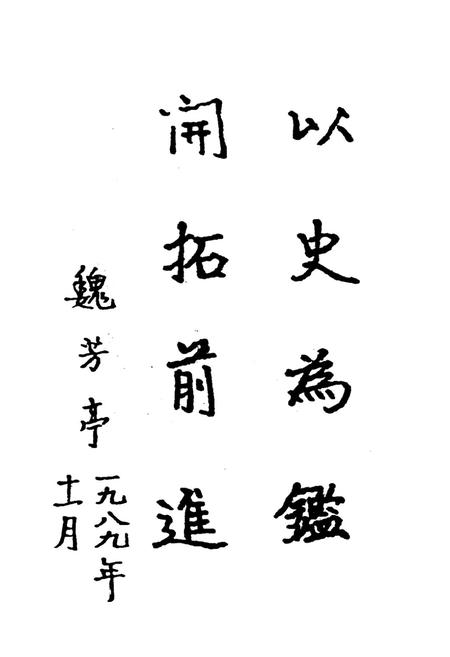 以史為鑑
開拓前進
魏芳亭
一九八九年
十一月